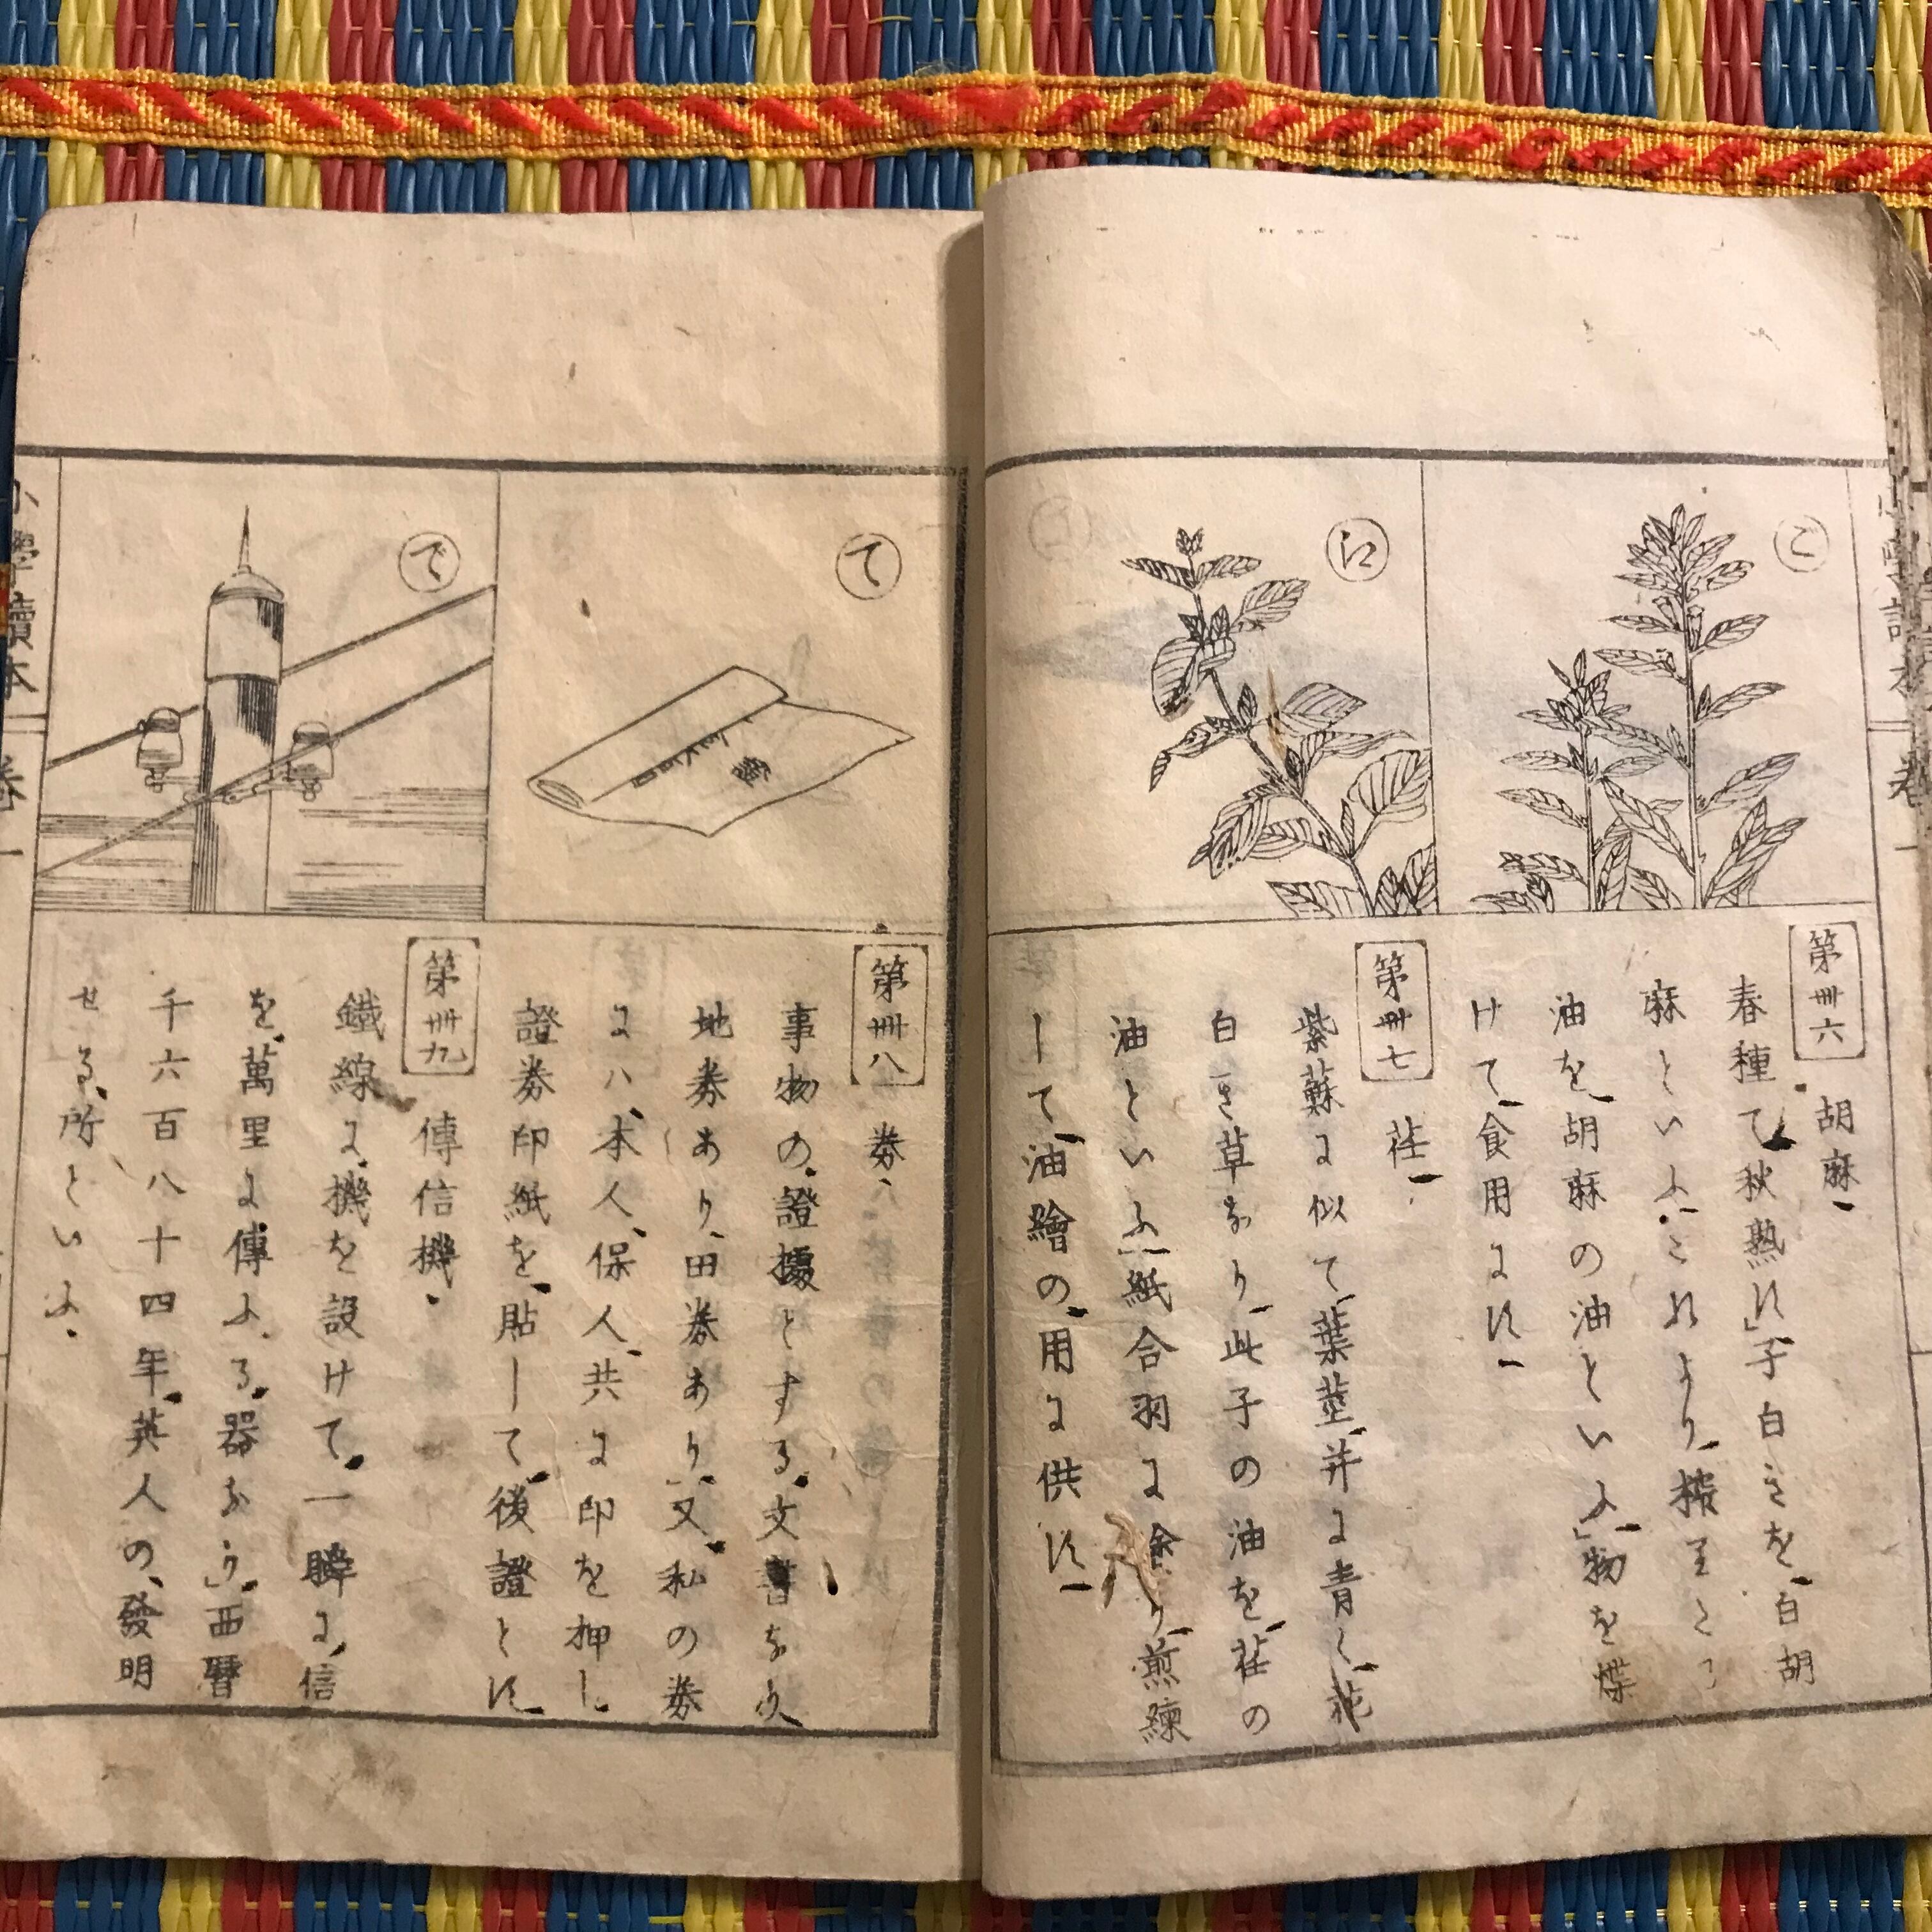 ご
第卅六
胡麻
春種て秋熟す」子白きを白胡
麻といふ」これより搾
油を胡麻の油といふ」物を煠
けて食用に供す
え
第卅七
荏
紫蘇に似て葉莖并に青く花
白き草なり此子の油を荏の
油といふ」紙合羽に塗り煎練
して油繪の用に供す
て
第卅八
券
事物の證據とする文書なり
地券あり田券あり」又私の券
にハ本人保人共に印を押し
證券印紙を貼して後證とす
で
第卅九
傳信機
鐵線に機を設けて一瞬に信
を萬里に傳ふる器なり」西暦
千六百八十四年英人の發明
せる所といふ
小學讀本
卷一